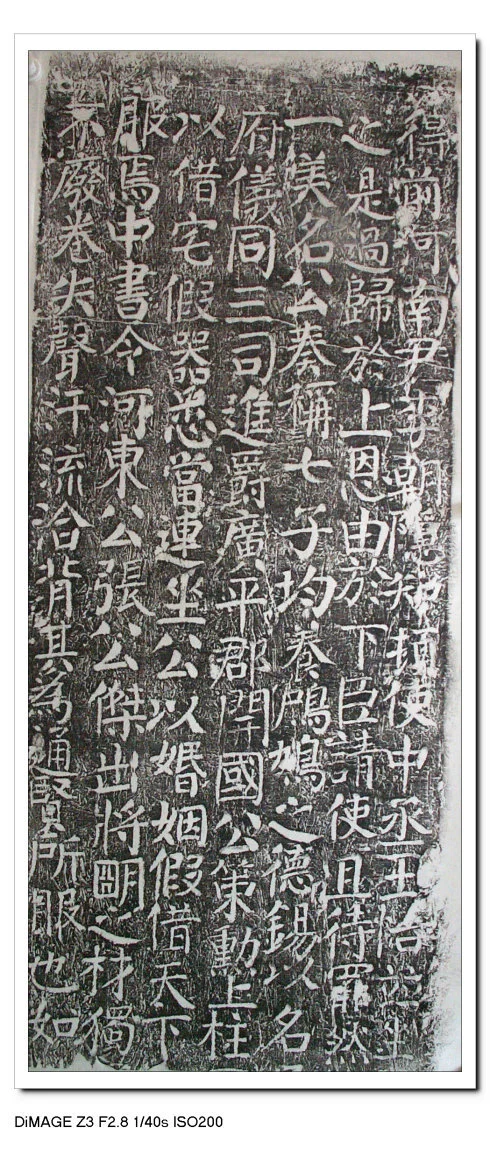 得河南尹李朝隱知頓使中丞王怡並坐
之是過歸於上恩由於下臣請使且待罪然
一美名公奏稱七子均養鳲鳩之德錫以名
府儀同三司進爵廣平郡開國公策勳上柱
以借宅假器悉當連坐公以婚姻假借天下
服焉中書令河東公張公傑出將明之材獨
亦廢卷失聲汗流洽背其為通賢所服也如
DiMAGE Z3 F2.8 1/40s ISO200